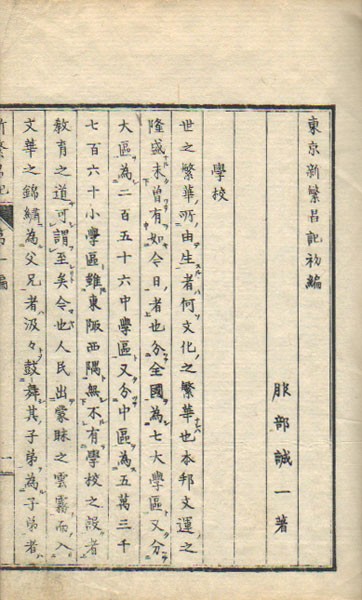 東京新繁昌記初編
服部誠一著
學校
世之繁華所由生者何文化之繁華也本邦文運之
隆盛未曾有如今日者也分全國為七大學區又分
大區為二百五十六中學區又分中區為五萬三千
七百六十小學區雖東陬西隅無不有學校之設者
教育之道可謂至矣今也人民出蒙昧之雲霧而入
文華之錦繡為父兄者汲々鼓舞其子弟為子弟者
新繁昌記 第一編 一